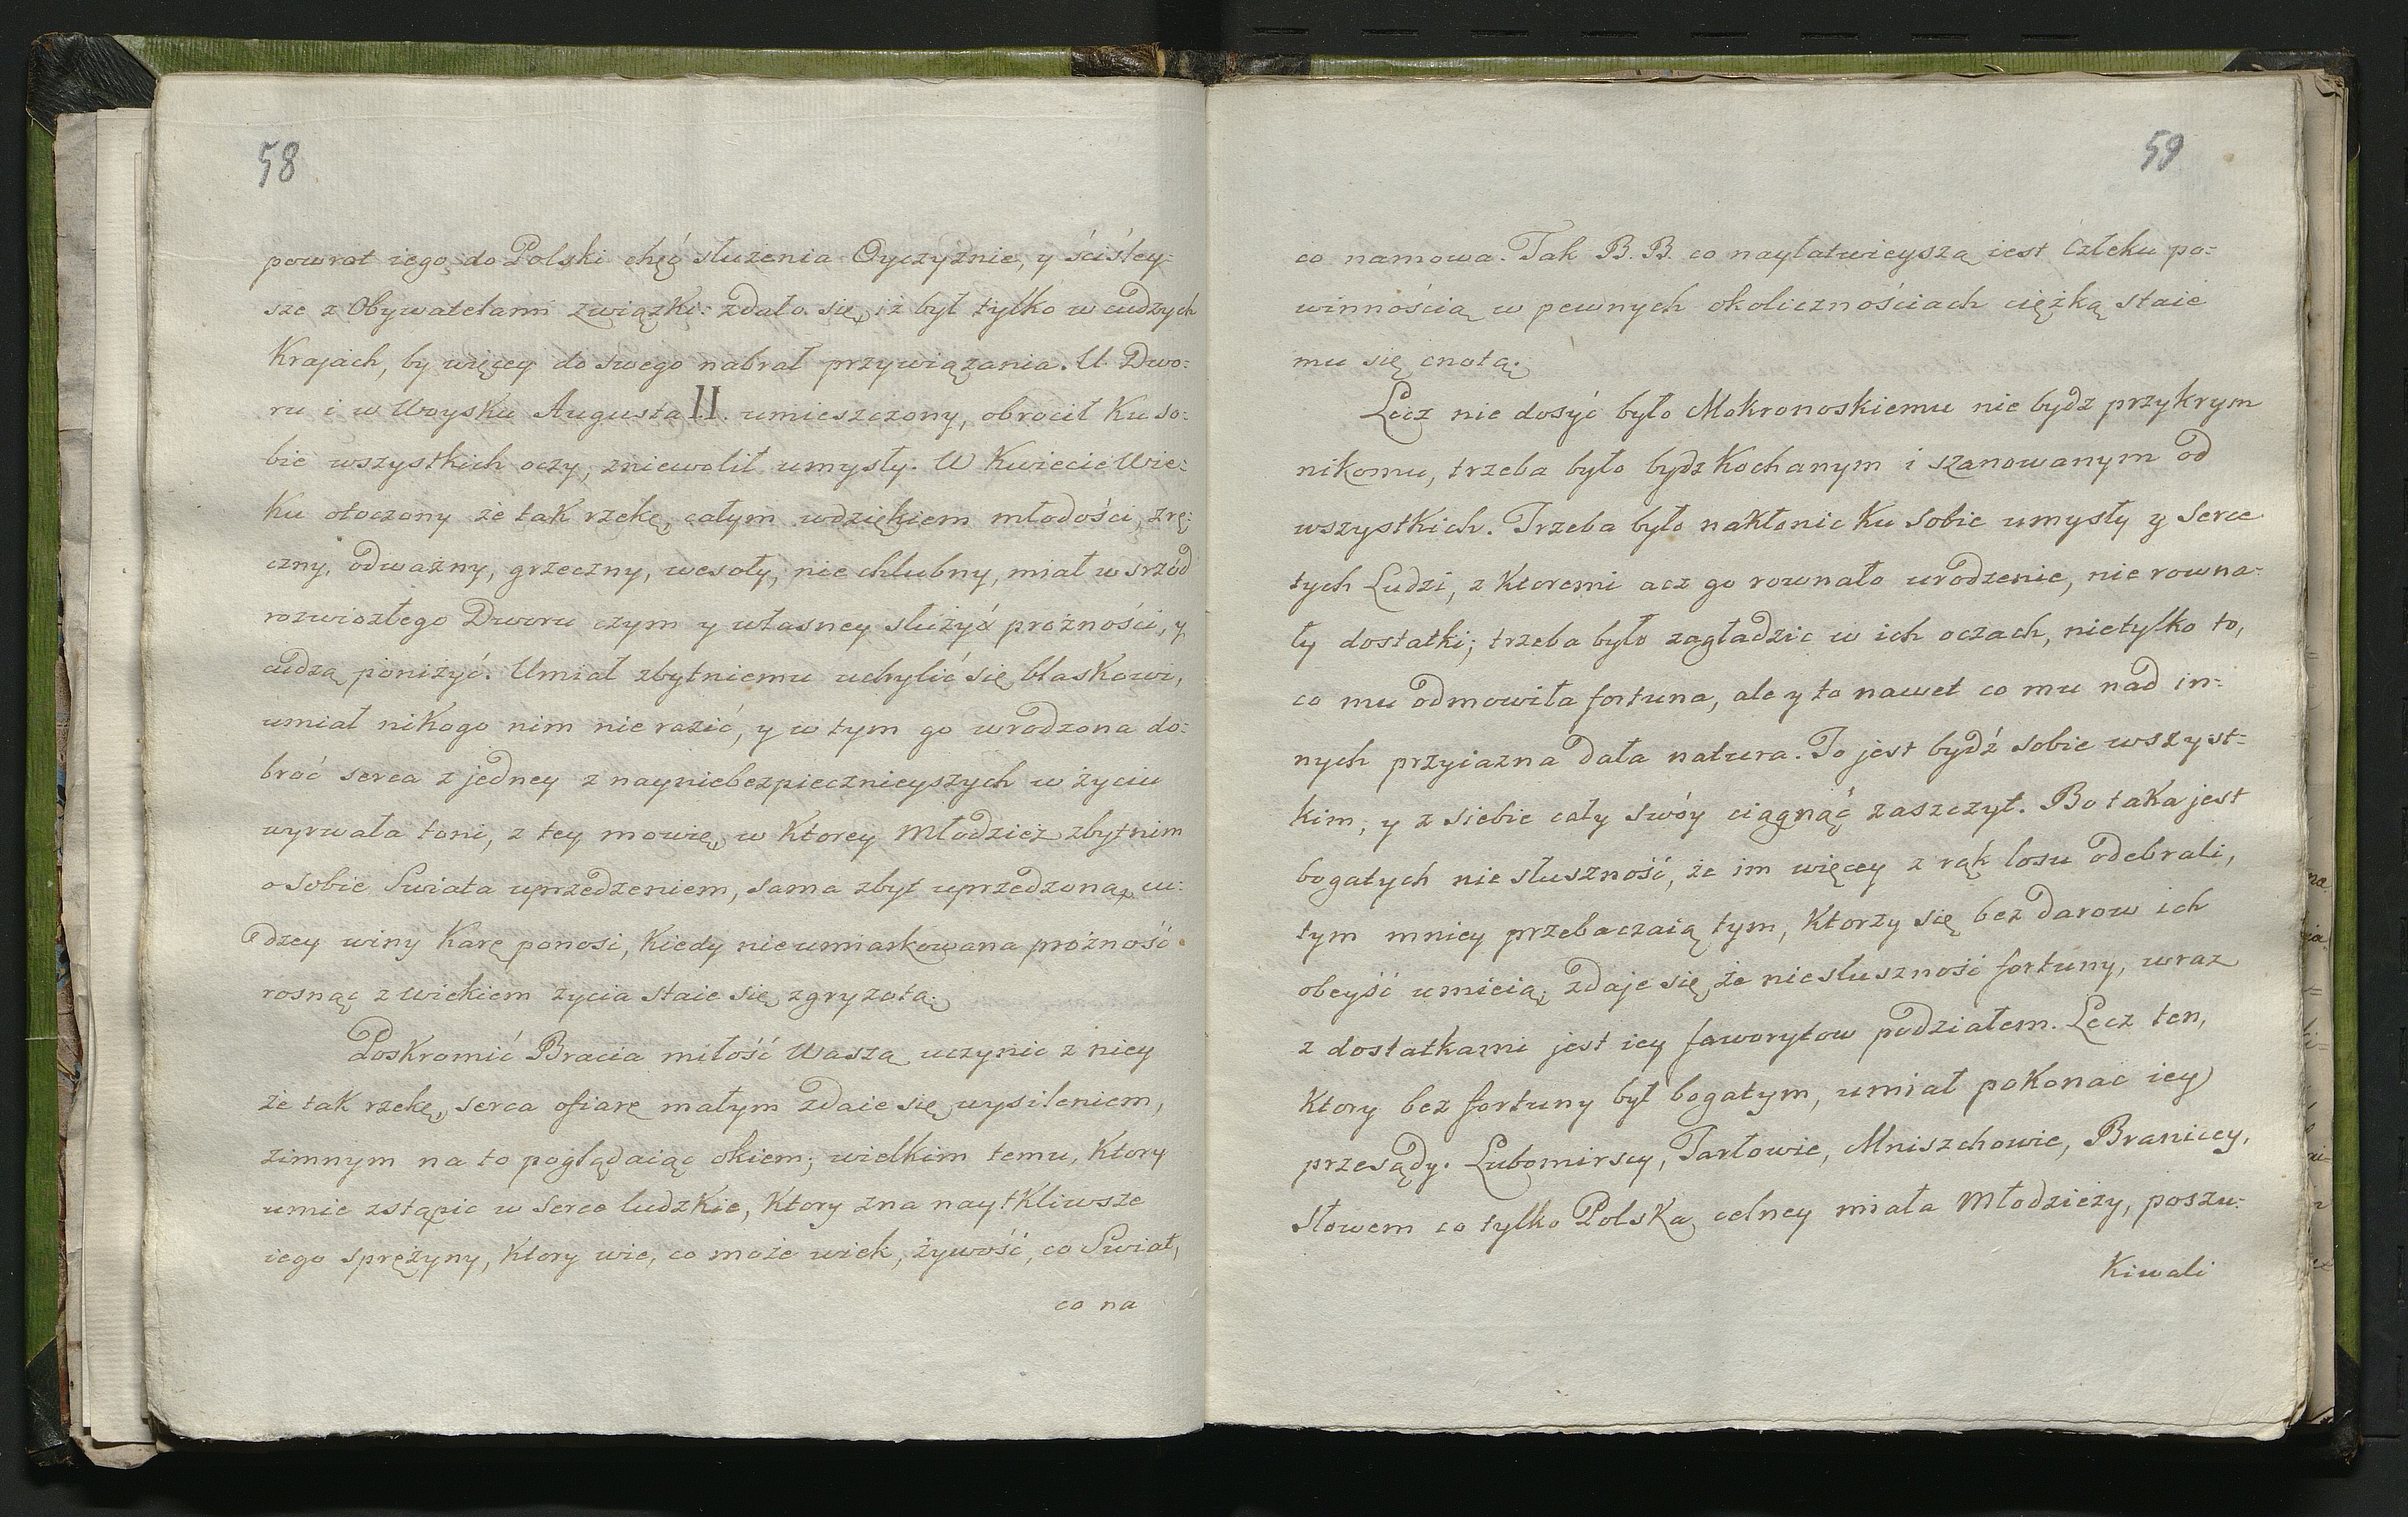 58
powrot iego do Polski chęć służenia Oyczyźnie, y ściśley-
sze z Obywatelami związki: zdało się, iż był tylko w cudzych
Krajach, by więcey do swego nabrał przywiązania. U Dwo-
ru i w Woysku Augusta II. umieszczony, obrocił Ku so-
bie wszystkich oczy, zniewolił umysły. W Kwiecie Wie-
Ku otoczony że tak rzekę, całym wdziękiem młodości, zrę-
czny, odważny, grzeczny, wesoły, nie chlubny, miał w srzod
rozwiozłego Dworu czym y własney służyć prożności, y
cudzą poniżyć. Umiał zbytniemu uchylić się blaskowi,
umiał nikogo nim nie razić, y w tym go wrodzona do-
broć serca z jedney z nayniebezpiecznieyszych w życiu
wyrwała toni, z tey mowię, w Ktorey Młodzież zbytnim
o sobie Swiata uprzedzeniem, sama zbyt uprzedzona, cu-
dzey winy Karę ponosi, Kiedy nieumiarkowana prożność
rosnąc z wiekiem życia staie się zgryzotą.
Poskromić Bracia miłość Waszą uczynic z niey
że tak rzekę, serca ofiarę małym zdaie się wysileniem,
zimnym na to poglądaiąc okiem; wielkim temu, Ktory
umie zstąpic w Serce ludzkie, Ktory zna naytkliwsze
iego sprężyny, Ktory wie, co może wiek, żywość, co Swiat,
co na
59
co namowa. Tak B. B. co nayłatwieyszą iest Człeku po-
winnością w pewnych okolicznościach ciężką staie
mu się cnotą.
Lecz nie dosyć było Mokronoskiemu nie bydz przykrym
nikomu, trzeba było bydz Kochanym i szanowanym od
wszystkich. Trzeba było nakłonic Ku Sobie umysły y Serce
tych Ludzi, z Ktoremi acz go rownało urodzenie, nie rowna-
ły dostatki; trzeba było zagładzic w ich oczach, nietylko to,
co mu odmowiła fortuna, ale y to nawet co mu nad in-
nych przyiazna dała natura. To jest bydź sobie wszyst-
kim, y z siebie cały swóy ciągnąć zaszczyt. Bo taka jest
bogatych nie słuszność, że im więcey z rąk losu odebrali,
tym mniey przebaczaią tym, Ktorzy się bez darow ich
obeyść umieią; zdaje się, że niesłuszność fortuny, wraz
z dostatkami jest iey faworytow podziałem. Lecz ten,
Ktory bez fortuny był bogatym, umiał pokonac iey
przesądy. Lubomirscy, Tarłowie, Mniszchowie, Braniccy,
Słowem co tylko Polska celney miała Młodzieży, poszu-
Kiwali